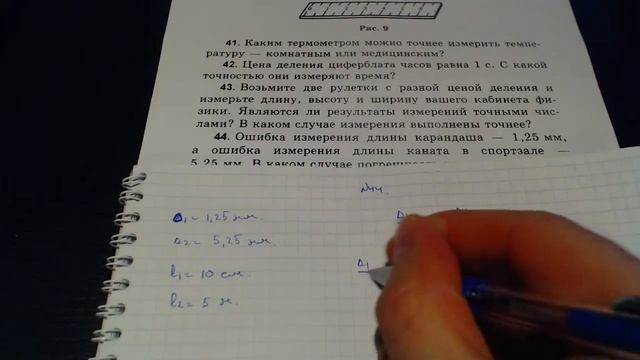 Рис. 9
41. Каким термометром можно точнее измерить темпе-
ратуру — комнатным или медицинским?
42. Цена деления циферблата часов равна 1 с. С какой
точностью они измеряют время?
43. Возьмите две рулетки с разной ценой деления и
измерьте длину, высоту и ширину вашего кабинета фи-
зики. Являются ли результаты измерений точными чис-
лами? В каком случае измерения выполнены точнее?
44. Ошибка измерения длины карандаша — 1,25 мм,
а ошибка измерения длины каната в спортзале —
5,25 мм. В каком случае
№44.
Δ₁ = 1,25 мм.
Δ₂ = 5,25 мм.
l₁ = 10 см
l₂ = 5 м.
Δ₁